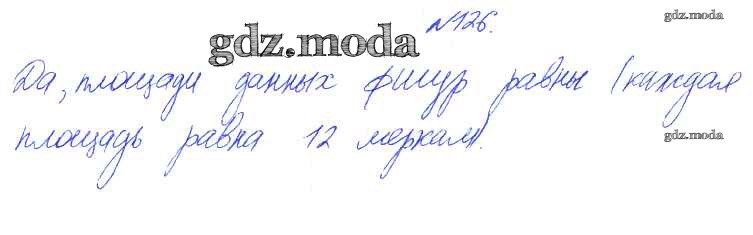 №126.
gdz.moda
gdz.moda
Да, площади данных фигур равны (каждая
площадь равна 12 меркам).
gdz.moda